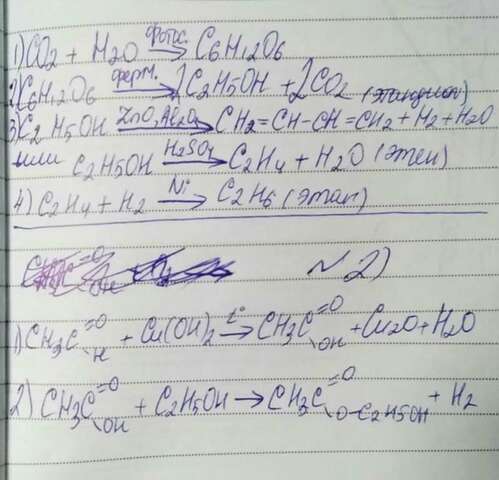 1) CO2 + H2O фотос. → C6H12O6
2) C6H12O6 ферм. → 2C2H5OH + 2CO2
3) C2H5OH ZnO, Al2O3 → CH2=CH-CH=CH2 + H2 + H2O
или C2H5OH H2SO4 → C2H4 + H2O (этен)
4) C2H4 + H2 Ni → C2H6 (этан)
№2)
1) CH3C =O \H + Cu(OH)2 t° → CH3C =O \OH + Cu2O + H2O
2) CH3C =O \OH + C2H5OH → CH3C =O \O-C2H5OH + H2